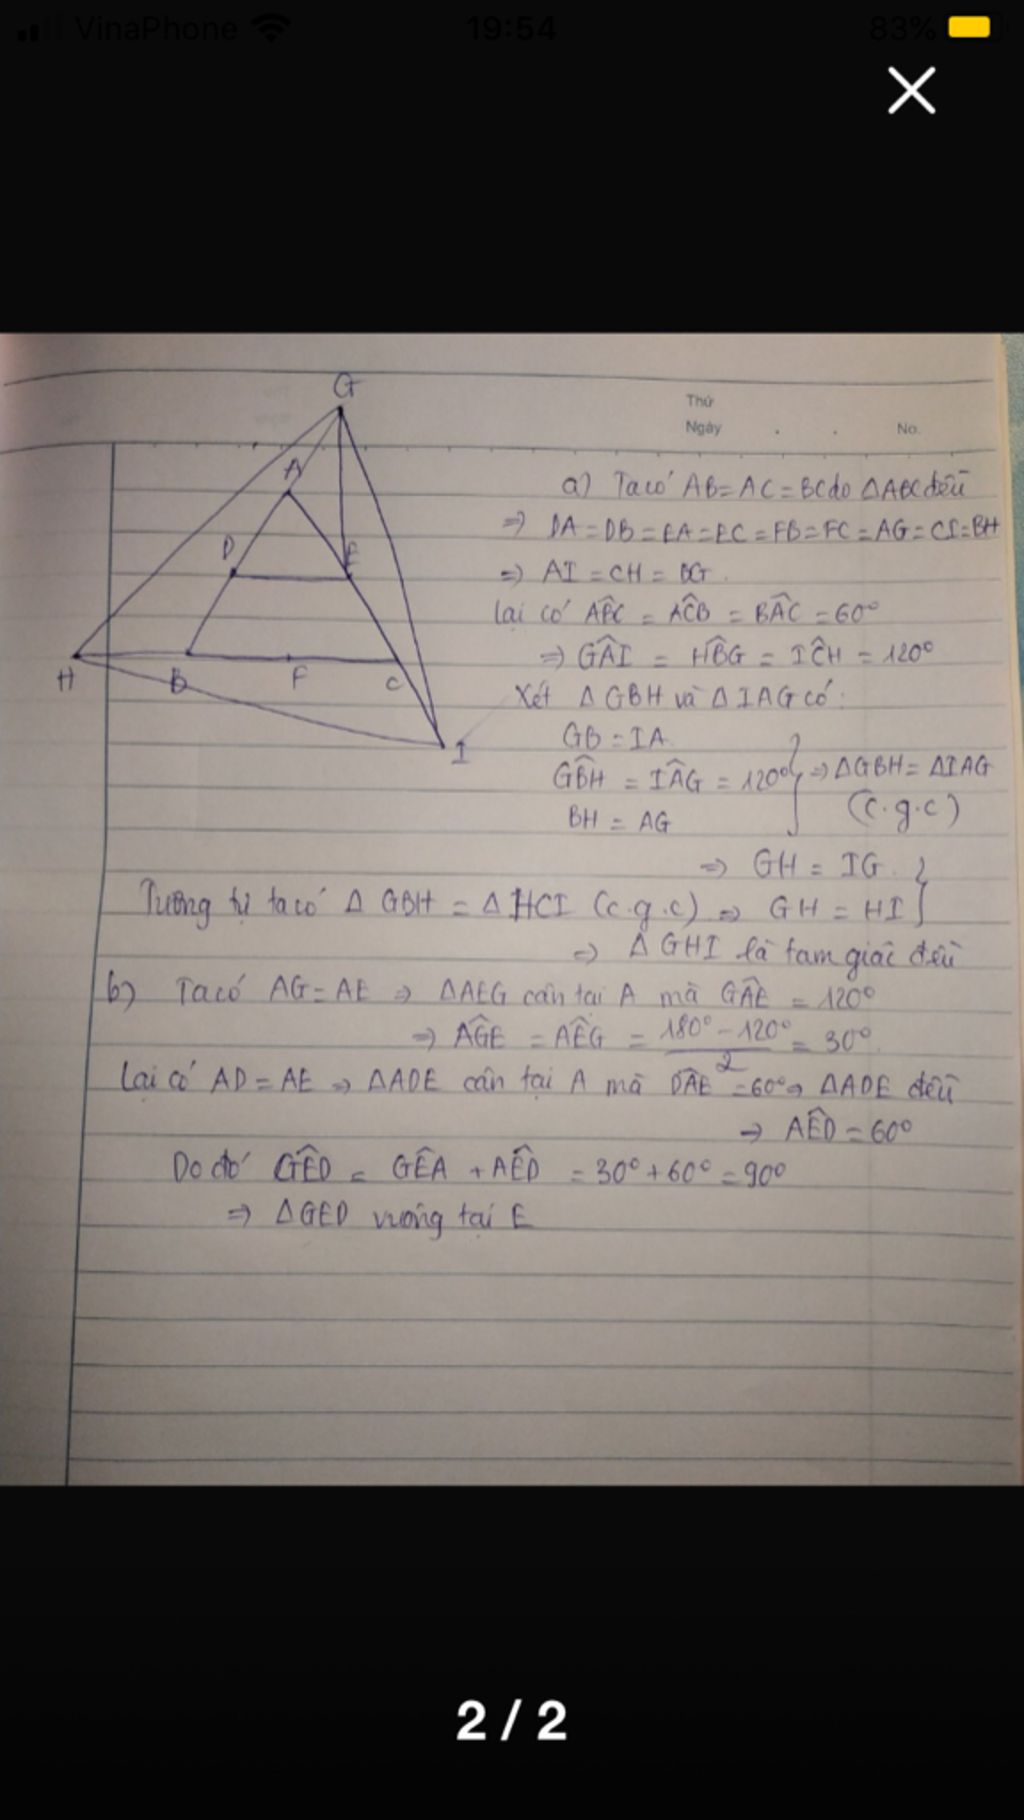 VinaPhone 19:54 83%
G
A
D
E
H
B
F
C
I
Thứ
Ngày . . No.
a) Ta có AB = AC = BC do ΔABC đều
=> DA = DB = EA = EC = FB = FC = AG = CI = BH
=> AI = CH = BG.
Lại có ABC^ = ACB^ = BAC^ = 60°
=> GAI^ = HBG^ = ICH^ = 120°
Xét Δ GBH và Δ IAG có:
GB = IA
GBH^ = IAG^ = 120° } => ΔGBH = ΔIAG
BH = AG (c.g.c)
=> GH = IG }
Tương tự ta có Δ GBH = Δ HCI (c.g.c) => GH = HI
=> Δ GHI là tam giác đều
b) Ta có AG = AE => ΔAEG cân tại A mà GAE^ = 120°
=> AGE^ = AEG^ = (180° - 120°)/2 = 30°
Lại có AD = AE => ΔADE cân tại A mà DAE^ = 60° => ΔADE đều
=> AED^ = 60°
Do đó GED^ = GEA^ + AED^ = 30° + 60° = 90°
=> ΔGED vuông tại E
2 / 2